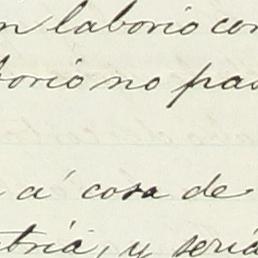 n laborio con
borio no pas
a á cosa de
tria, y seria